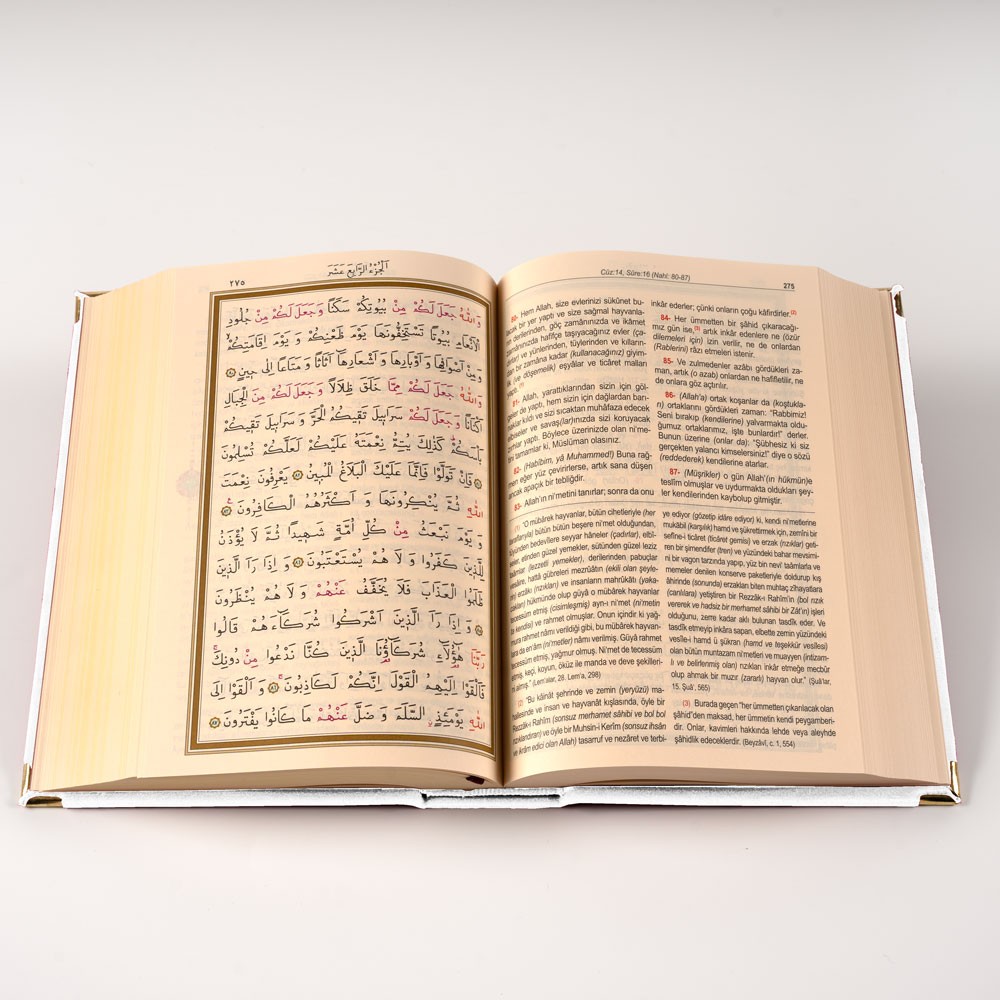 اَلْجُزْءُ الرَّابِعَ عَشَرَ
٢٧٥
وَاللّٰهُ جَعَلَ لَكُمْ مِنْ بُيُوتِكُمْ سَكَنًا وَجَعَلَ لَكُمْ مِنْ جُلُودِ
الْاَنْعَامِ بُيُوتًا تَسْتَخِفُّونَهَا يَوْمَ ظَعْنِكُمْ وَيَوْمَ اِقَامَتِكُمْ
وَمِنْ اَصْوَافِهَا وَاَوْبَارِهَا وَاَشْعَارِهَا اَثَاثًا وَمَتَاعًا اِلٰى حِينٍ ﴿٨٠﴾
وَاللّٰهُ جَعَلَ لَكُمْ مِمَّا خَلَقَ ظِلَالًا وَجَعَلَ لَكُمْ مِنَ الْجِبَالِ
اَكْنَانًا وَجَعَلَ لَكُمْ سَرَابِيلَ تَقِيكُمُ الْحَرَّ وَسَرَابِيلَ تَقِيكُمْ
بَأْسَكُمْ كَذٰلِكَ يُتِمُّ نِعْمَتَهُ عَلَيْكُمْ لَعَلَّكُمْ تُسْلِمُونَ
﴿٨١﴾ فَاِنْ تَوَلَّوْا فَاِنَّمَا عَلَيْكَ الْبَلَاغُ الْمُبِينُ ﴿٨٢﴾ يَعْرِفُونَ نِعْمَتَ
اللّٰهِ ثُمَّ يُنْكِرُونَهَا وَاَكْثَرُهُمُ الْكَافِرُونَ ﴿٨٣﴾
وَيَوْمَ نَبْعَثُ مِنْ كُلِّ اُمَّةٍ شَهِيدًا ثُمَّ لَا يُؤْذَنُ
لِلَّذِينَ كَفَرُوا وَلَا هُمْ يُسْتَعْتَبُونَ ﴿٨٤﴾ وَاِذَا رَاَ الَّذِينَ
ظَلَمُوا الْعَذَابَ فَلَا يُخَفَّفُ عَنْهُمْ وَلَا هُمْ يُنْظَرُونَ
﴿٨٥﴾ وَاِذَا رَاَ الَّذِينَ اَشْرَكُوا شُرَكَاءَهُمْ قَالُوا
رَبَّنَا هٰؤُلَاءِ شُرَكَاؤُنَا الَّذِينَ كُنَّا نَدْعُوا مِنْ دُونِكَ
فَاَلْقَوْا اِلَيْهِمُ الْقَوْلَ اِنَّكُمْ لَكَاذِبُونَ ﴿٨٦﴾ وَاَلْقَوْا اِلَى
اللّٰهِ يَوْمَئِذٍ السَّلَمَ وَضَلَّ عَنْهُمْ مَا كَانُوا يَفْتَرُونَ ﴿٨٧﴾
Cüz:14, Sûre:16 (Nahl: 80-87)
275
80- Hem Allah, size evlerinizi sükûnet bu-
lacak bir yer yaptı ve size sağmal hayvanla-
rın derilerinden, göç zamânınızda ve ikāmet
zamânınızda hafifçe taşıyacağınız evler (ça-
dırlar) ve yünlerinden, tüylerinden ve kılların-
dan bir zamâna kadar (kullanacağınız) giyim-
lik (ve döşemelik) eşyâlar ve ticâret malları
yaptı. (1)
81- Allah, yarattıklarından sizin için göl-
geler de yaptı, hem sizin için dağlardan barı-
naklar kıldı ve sizi sıcaktan muhâfaza edecek
elbiseler ve savaş(lar)ınızda sizi koruyacak
zırhlar yaptı. Böylece üzerinizde olan ni'me-
tini tamamlar ki, Müslüman olasınız.
82- (Habîbim, yâ Muhammed!) Buna rağ-
men eğer yüz çevirirlerse, artık sana düşen
ancak apaçık bir tebliğdir.
83- Allah'ın ni'metini tanırlar; sonra da onu
inkâr ederler; çünki onların çoğu kâfirdirler.(2)
84- Her ümmetten bir şâhid çıkaracağı-
mız gün ise,(3) artık inkâr edenlere ne (özür
dilemeleri için) izin verilir, ne de onlardan
(Rablerini) râzı etmeleri istenir.
85- Ve zulmedenler azâbı gördükleri za-
man, artık (o azab) onlardan ne hafifletilir, ne
de onlara göz açtırılır.
86- (Allah'a) ortak koşanlar da (koştukla-
rı) ortaklarını gördükleri zaman: "Rabbimiz!
Seni bırakıp (kendilerine) yalvarmakta oldu-
ğumuz ortaklarımız, işte bunlardır!" derler.
Bunun üzerine (onlar da): "Şübhesiz ki siz
gerçekten yalancı kimselersiniz!" diye o sözü
(reddederek) kendilerine atarlar.
87- (Müşrikler) o gün Allah'(ın hükmün)e
teslîm olmuşlar ve uydurmakta oldukları şey-
ler kendilerinden kaybolup gitmiştir.
(1) "O mübârek hayvanlar, bütün cihetleriyle (her
taraflarıyla) bütün bütün beşere ni'met olduğundan,
tüyünden bedevîlere seyyar hâneler (çadırlar), elbi-
seler, elinden güzel yemekler, sütünden güzel leziz
taâmlar (lezzetli yemekler), derilerinden pabuçlar
vesâire, hattâ gübreleri mezrûâtın (ekili olan şeyle-
rin) erzâkı (rızıkları) ve insanların mahrûkâtı (yaka-
cakları) hükmünde olup güyâ o mübârek hayvanlar
tecessüm etmiş (cisimleşmiş) ayn-ı ni'met (ni'metin
bir kendisi) ve rahmet olmuşlar. Onun içindir ki yağ-
mura rahmet nâmı verildiği gibi, bu mübârek hayvan-
lara da en'âm (ni'metler) nâmı verilmiş. Güyâ rahmet
tecessüm etmiş, yağmur olmuş. Ni'met de tecessüm
etmiş, keçi, koyun, öküz ile manda ve deve şekilleri-
ni almış." (Lem'alar, 28. Lem'a, 298)
(2) "Bu kâinât şehrinde ve zemin (yeryüzü) ma-
hallesinde ve insan ve hayvanât kışlasında, öyle bir
Rezzâk-ı Rahîm (sonsuz merhamet sâhibi ve bol bol
rızıklandıran) ve öyle bir Muhsin-i Kerîm (sonsuz ihsân
ve ikrâm edici olan Allah) tasarruf ve nezâret ve terbi-
ye ediyor (gözetip idâre ediyor) ki, kendi ni'metlerine
mukābil (karşılık) hamd ve şükrettirmek için, zemîni bir
sefîne-i ticâret (ticâret gemisi) ve erzak (rızıklar) geti-
ren bir şimendifer (tren) ve yüzündeki bahar mevsimi-
ni bir vagon tarzında yapıp, yüz bin nevi' taâmlarla ve
memeler denilen konserve paketleriyle doldurup kış
âhirinde (sonunda) erzakları biten muhtaç zîhayatlara
(canlılara) yetiştiren bir Rezzâk-ı Rahîm'in (bol rızık
vererek ve hadsiz bir merhamet sâhibi bir Zât'ın) işleri
olduğunu, zerre kadar aklı bulunan tasdîk eder. Ve
tasdîk etmeyip inkâra sapan, elbette zemin yüzündeki
vesîle-i hamd ü şükran (hamd ve teşekkür vesîlesi)
olan bütün muntazam ni'metleri ve muayyen (intizam-
lı ve belirlenmiş olan) rızıkları inkâr etmeğe mecbûr
olup ahmak bir muzır (zararlı) hayvan olur." (Şuâ'lar,
15. Şuâ', 565)
(3) Burada geçen "her ümmetten çıkarılacak olan
şâhid"den maksad, her ümmetin kendi peygamberi-
dir. Onlar, kavimleri hakkında lehde veya aleyhde
şâhidlik edeceklerdir. (Beyzâvî, c. 1, 554)